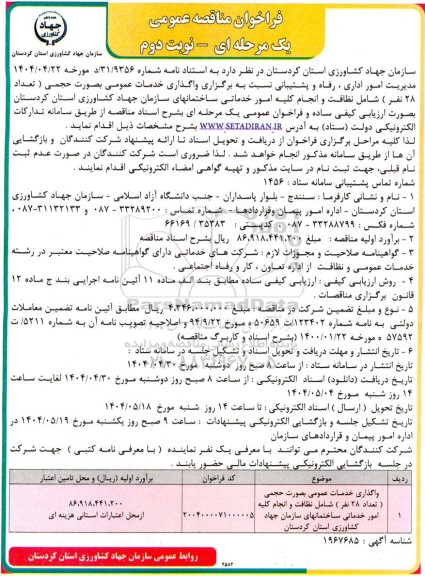 فراخوان مناقصه عمومی
یک مرحله ای - نوبت دوم
جهاد کشاورزی
سازمان جهاد کشاورزی استان کردستان
سازمان جهاد کشاورزی استان کردستان در نظر دارد به استناد نامه شماره ۳۱/۹۳۵۶/د مورخه ۱۴۰۴/۰۴/۲۲
مدیریت امور اداری ، رفاه و پشتیبانی نسبت به برگزاری واگذاری خدمات عمومی بصورت حجمی ( تعداد
۲۸ نفر ) شامل نظافت و انجام کلیه امور خدماتی ساختمانهای سازمان جهاد کشاورزی استان کردستان
بصورت ارزیابی کیفی ساده و فراخوان عمومی یک مرحله ای بشرح اسناد مناقصه از طریق سامانه تدارکات
الکترونیکی دولت (ستاد) به آدرس WWW.SETADIRAN.IR بشرح مشخصات ذیل اقدام نماید .
لذا کلیه مراحل برگزاری فراخوان از دریافت و تحویل اسناد تا ارائه پیشنهاد شرکت کنندگان و بازگشایی
آن ها از طریق سامانه مذکور انجام خواهد شد . لذا ضروری است شرکت کنندگان در صورت عدم ثبت
نام قبلی، جهت ثبت نام در سایت مذکور و تهیه گواهی امضاء الکترونیکی اقدام نمایند .
شماره تماس پشتیبانی سامانه ستاد : ۱۴۵۶
۱ - نام و نشانی کارفرما : سنندج - بلوار پاسداران - جنب دانشگاه آزاد اسلامی - سازمان جهاد کشاورزی
استان کردستان - اداره امور پیمان وقراردادها - شماره تماس : ۳۳۲۸۹۲۰۰ - ۰۸۷ و ۳۱۱۳۲۱۳۳-۰۸۷
شماره فکس : ۳۳۲۸۸۷۹۹-۰۸۷ کدپستی : ۳۵۳۸۳ / ۶۶۱۶۹
۲ - برآورد اولیه مناقصه : مبلغ ۸۶،۹۱۸،۴۴۱،۲۰۰ ریال بشرح اسناد مناقصه
۳ - گواهینامه صلاحیت و مجوزات لازم : شرکت های خدماتی دارای گواهینامه صلاحیت معتبر در رشته
خدمات عمومی و نظافت از اداره تعاون ، کار و رفاه اجتماعی .
۴ - روش ارزیابی کیفی : ارزیابی کیفی ساده مطابق بند الف ماده ۱۱ آئین نامه اجرایی بند ج ماده ۱۲
قانون برگزاری مناقصات .
۵ - نوع و مبلغ تضمین شرکت در مناقصه : مبلغ ۴،۳۴۶،۰۰۰،۰۰۰ ریال- مطابق آئین نامه تضمین معاملات
دولتی به نامه شماره ۱۲۳۴۰۲/ت ۵۰۶۵۹ ه مورخ ۹۴/۹/۲۲ و اصلاحیه تصویب نامه آن به شماره ۵۲۱۱ /ت
۵۷۵۹۲ ه مورخه ۱۴۰۰/۰۱/۲۲ (بشرح اسناد و کاربرگ مناقصه)
۶ - تاریخ انتشار و مهلت دریافت و تحویل اسناد و تشکیل جلسه در سامانه ستاد :
تاریخ انتشار در سامانه ستاد : از ساعت ۸ صبح روز دوشنبه مورخ ۱۴۰۴/۰۴/۳۰
تاریخ دریافت (دانلود) اسناد الکترونیکی : از ساعت ۸ صبح روز دوشنبه مورخ ۱۴۰۴/۰۴/۳۰ لغایت ساعت
۱۴ روز شنبه مورخ ۱۴۰۴/۰۵/۰۴
تاریخ تحویل ( ارسال ) اسناد الکترونیکی : تا ساعت ۱۴ روز شنبه مورخ ۱۴۰۴/۰۵/۱۸
تاریخ تشکیل جلسه و بازگشایی الکترونیکی پیشنهادات : ساعت ۹ صبح روز یکشنبه مورخ ۱۴۰۴/۰۵/۱۹ در
اداره امور پیمان و قراردادهای سازمان
شرکت کنندگان محترم می توانند با معرفی یک نفر نماینده ( با معرفی نامه کتبی ) جهت شرکت
در جلسه بازگشایی الکترونیکی پیشنهادات مالی حضور یابند .
ردیف موضوع کد فراخوان برآورد اولیه (ریال) و محل تامین اعتبار
۱ واگذاری خدمات عمومی بصورت حجمی ( تعداد ۲۸ نفر ) شامل نظافت و انجام کلیه امور خدماتی ساختمانهای سازمان جهاد کشاورزی استان کردستان ۲۰۰۴۰۰۰۰۷۱۰۰۰۰۰۵ ۸۶،۹۱۸،۴۴۱،۲۰۰ ازمحل اعتبارات استانی هزینه ای
شناسه آگهی : ۱۹۶۷۶۸۵
روابط عمومی سازمان جهاد کشاورزی استان کردستان
۲۵۸۲
ParsNamadData